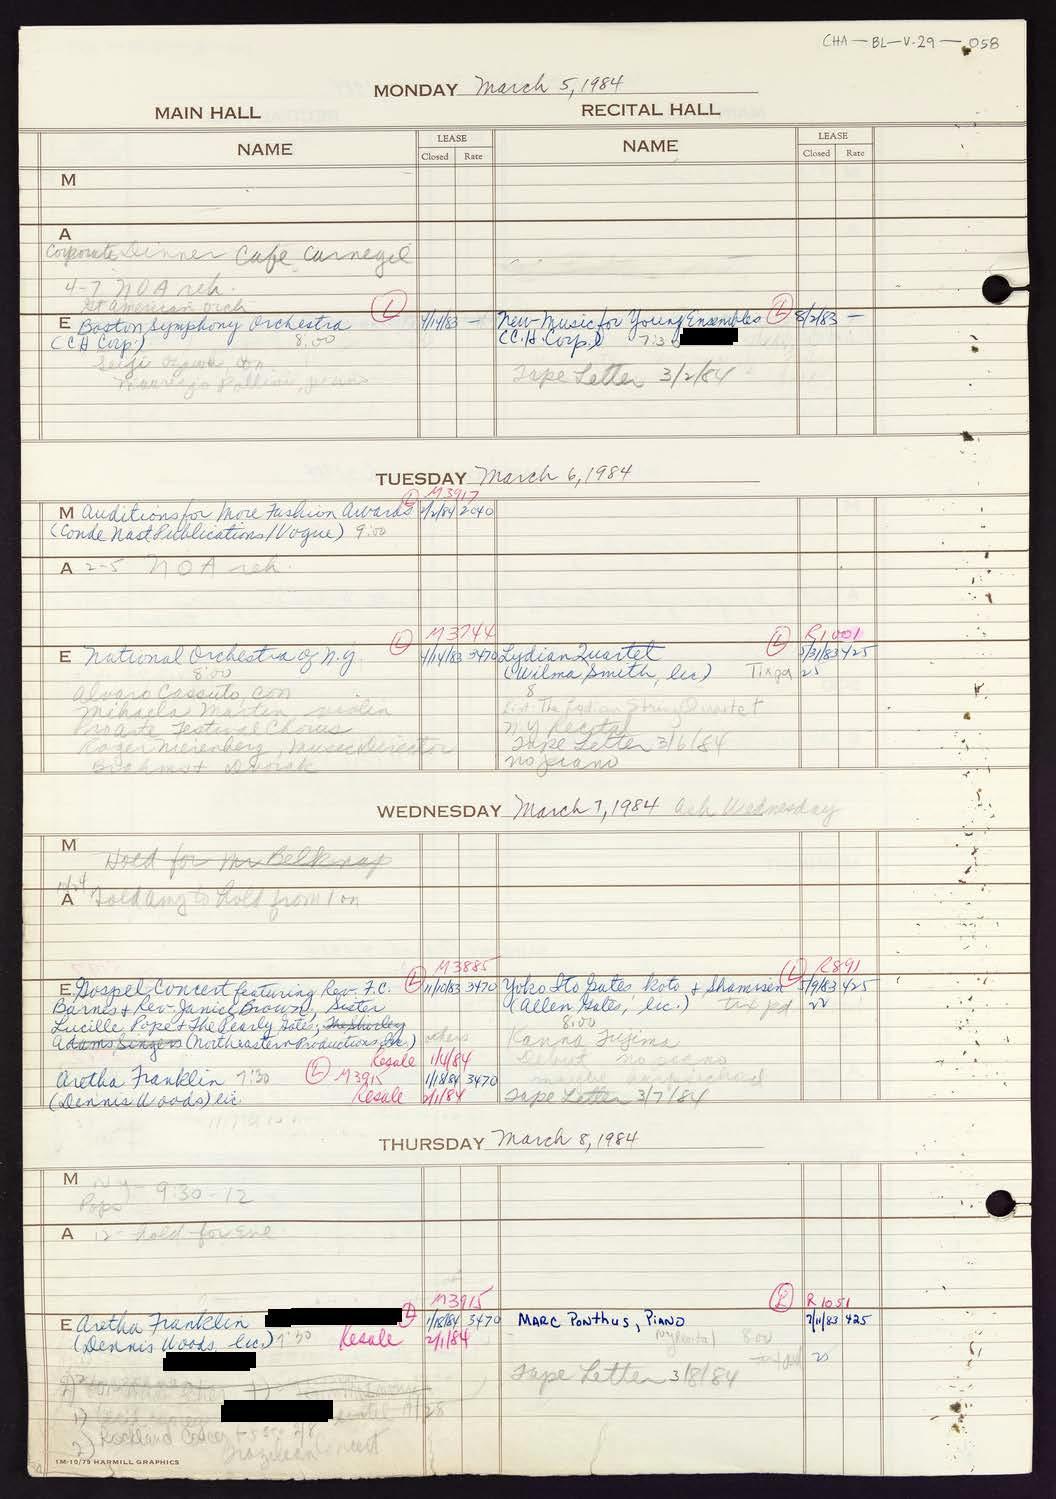 CHA-BL-V-29-058
MONDAY March 5, 1984
MAIN HALL
RECITAL HALL
NAME
LEASE
Closed Rate
NAME
LEASE
Closed Rate
M
A
Corporate Dinner Cafe Carnegie
4-7 NOA reh.
American Orch
E Boston Symphony Orchestra (L) 4/14/83 —
(CH Corp.) 8:00
Seiji Ozawa, con
Maurizio Pollini, piano
New Music for Young Ensembles (L) 8/2/83 —
(C.H. Corp.)
Tape Letter 3/2/84
TUESDAY March 6, 1984
M3917
M Auditions for More Fashion Awards (L) 2/2/84 2040
(Conde Nast Publications/Vogue) 9:00
A 2-5 NOA reh.
M3744
E National Orchestra of N.Y. (L) 4/14/83 3470
8:00
Alvaro Cassuto, con
Mihaela Martin violin
Pro Arte Festival Chorus
Roger Nierenberg, Music Director
Brahms + Dvorak
R1001
Lydian Quartet (L) 5/31/83 425
(Wilma Smith, lic) Tix pd 25
8
List: The Lydian String Quartet
NY Recital
Tape Letter 3/6/84
no piano
WEDNESDAY March 7, 1984 Ash Wednesday
M
Hold for Mr Belknap
A Told Amy to hold from 1 on
M3885
E Gospel Concert featuring Rev. F.C. (L) 11/10/83 3470
Barnes + Rev. Janice Brown, Sister
Lucille Pope + The Pearly Gates, The Shirley
Adams Singers (Northeastern Productions, Inc.) others
Resale 1/4/84
Aretha Franklin 7:30 (L) M3915 1/18/84 3470
(Dennis Woods) lic. Resale 2/1/84
R891
Yoko Ito Gates koto + Shamisen (L) 5/9/83 425
(Allen Gates, lic.) tix pd 22
8:00
Kanna Fujima
Debut no piano
maybe harpsichord
Tape Letter 3/7/84
THURSDAY March 8, 1984
M NY- 9:30-12
Pops
A 12- hold for Eve
M3915
E Aretha Franklin (L) 1/18/84 3470
(Dennis Woods, lic.) 7:30 Resale 2/1/84
1)
Rockland
2) Brazilian Concert
R1051
(L)
MARC PONTHUS, PIANO 7/11/83 425
NY Recital 8:00
25
Tape Letter 3/8/84
1M-10/79 HARMILL GRAPHICS